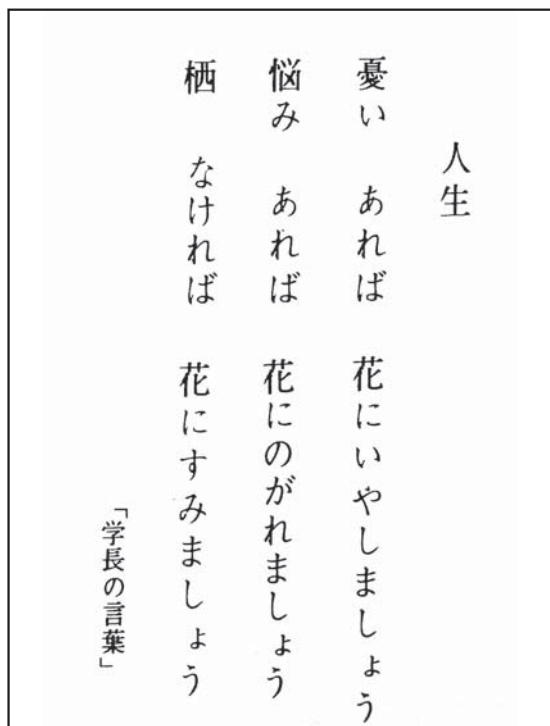 人生
憂い あれば 花にいやしましょう
悩み あれば 花にのがれましょう
栖 なければ 花にすみましょう
「学長の言葉」